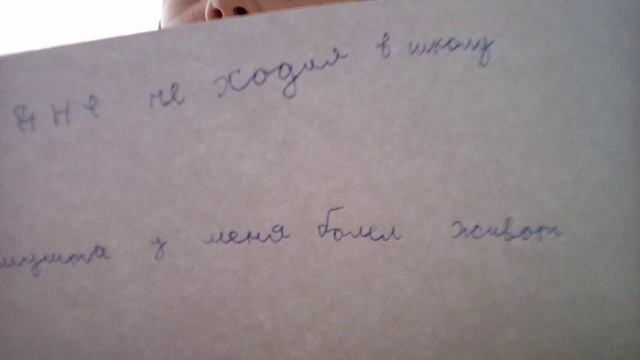 не ходил в школу
у меня болел живот